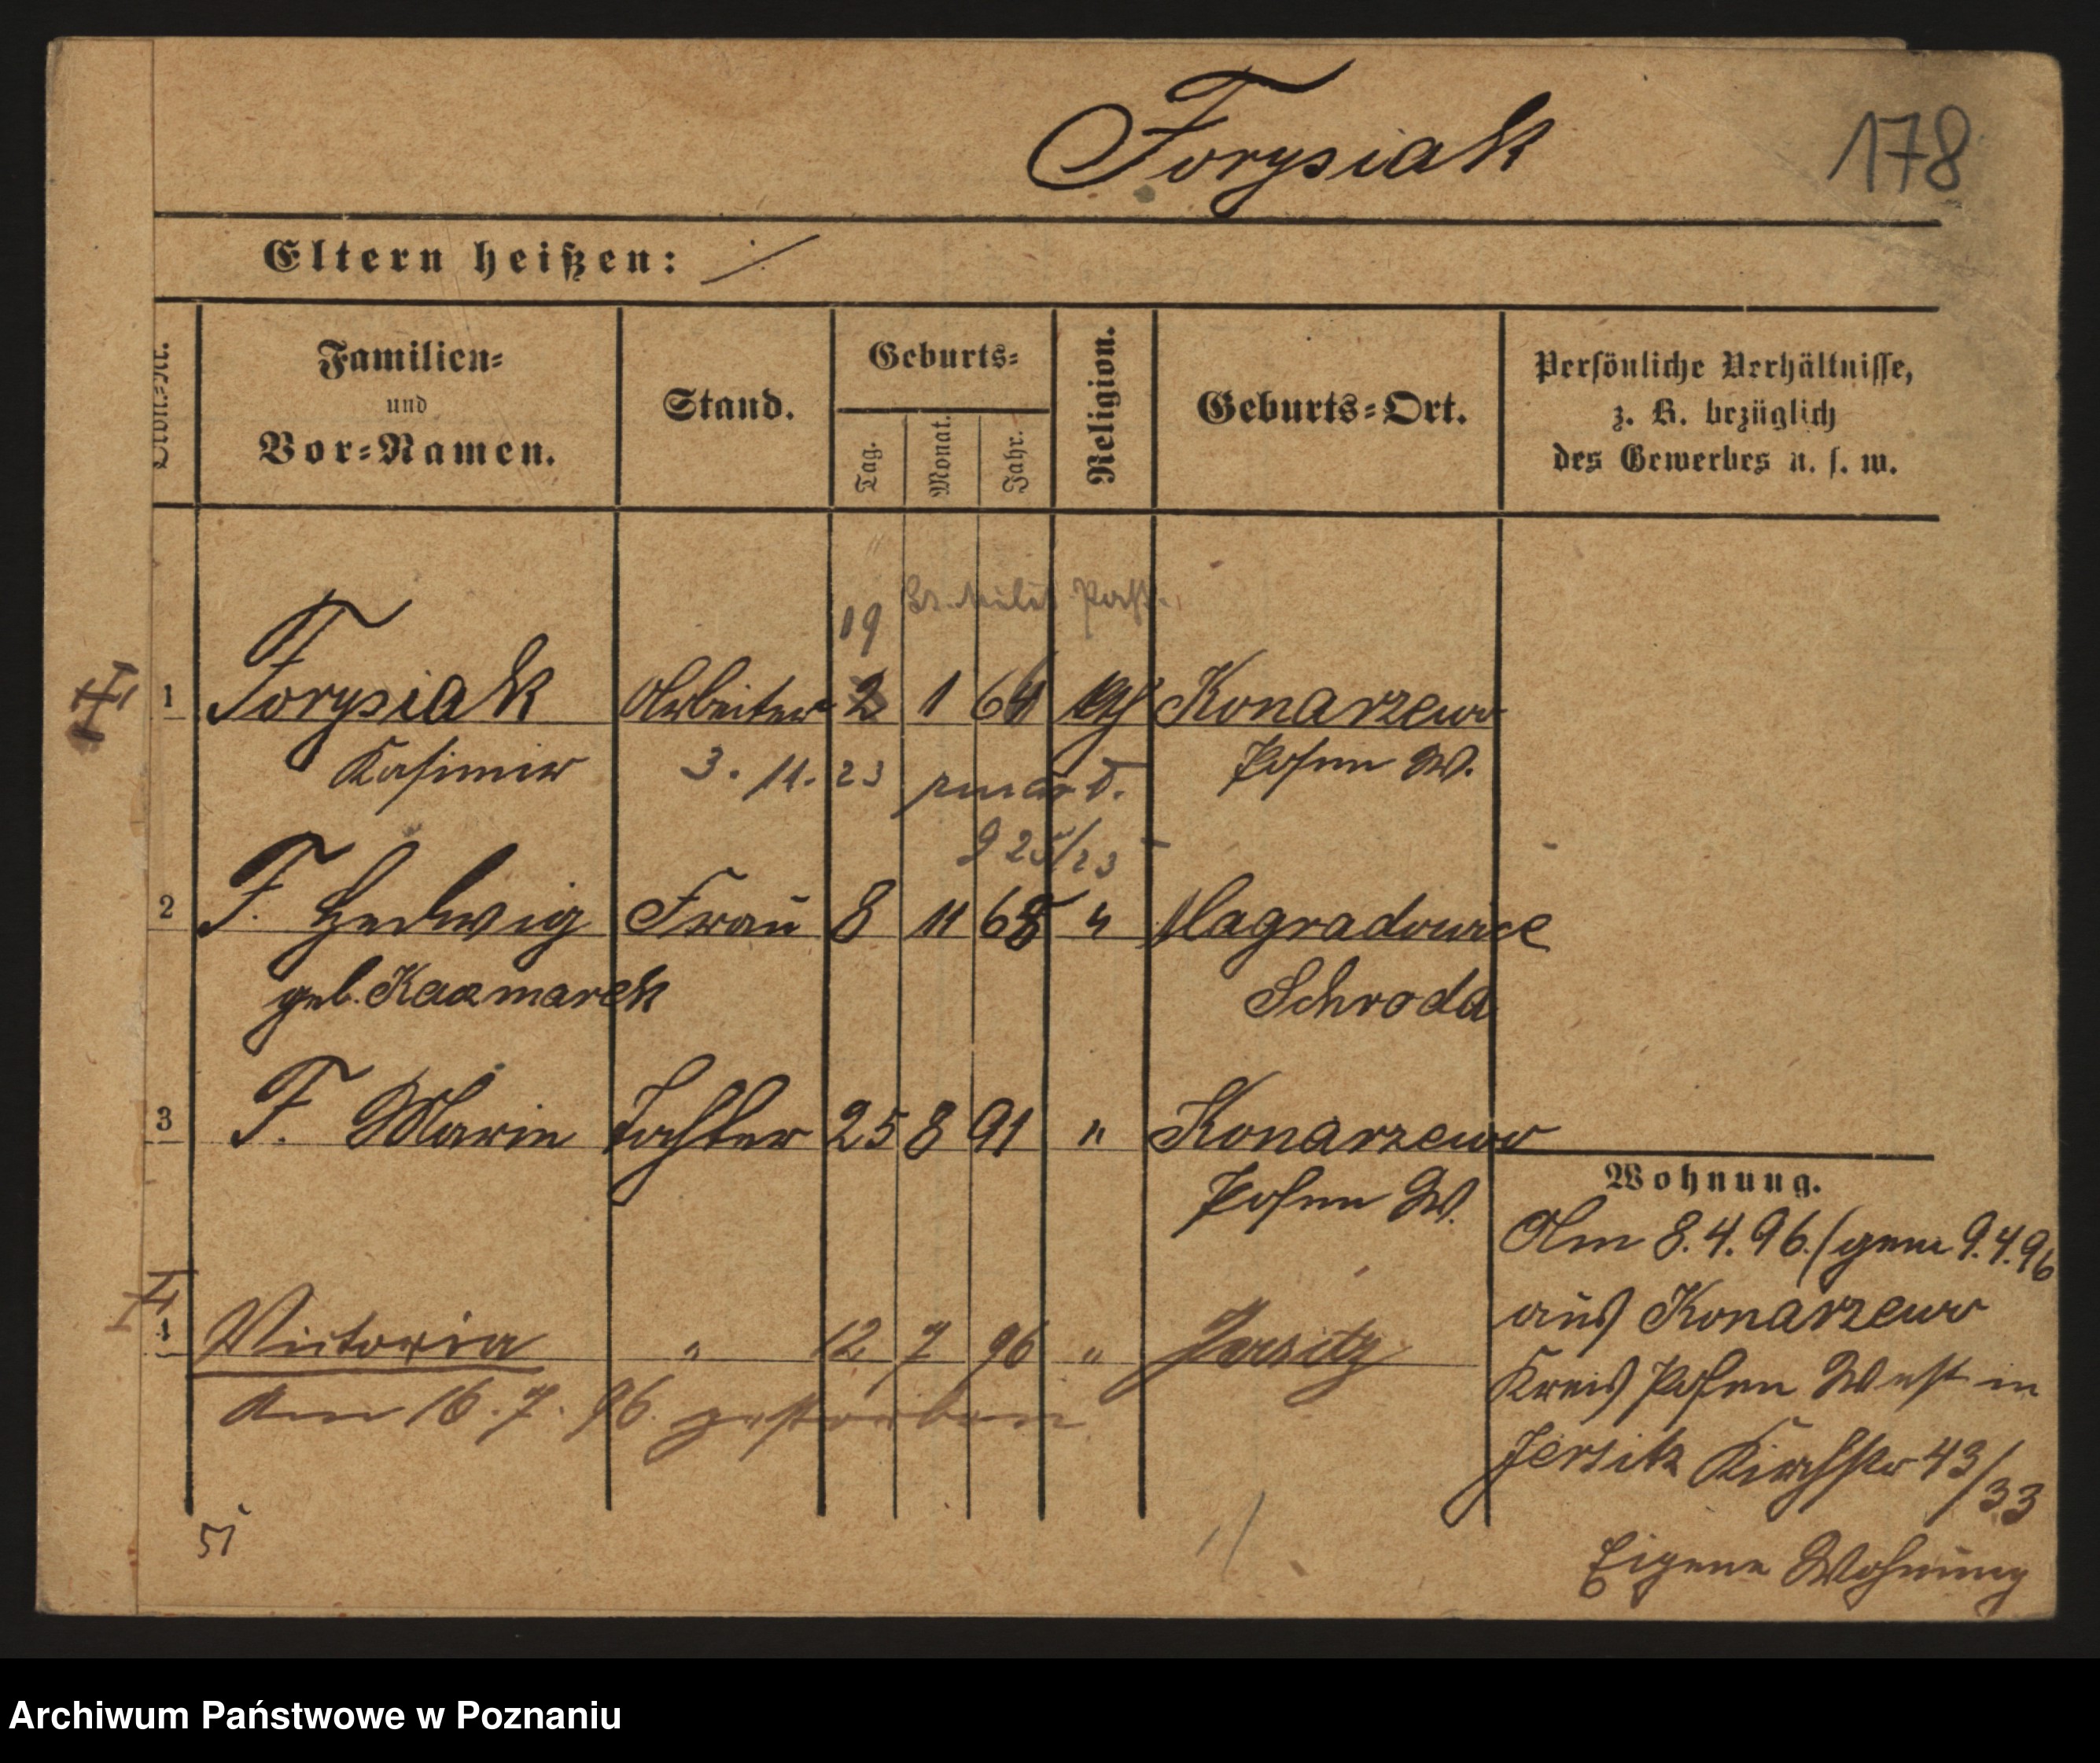 Forysiak
178
Eltern heißen: ./.
Ordn.-Nr.
Familien-
und
Vor-Namen.
Stand.
Geburts-
Tag.
Monat.
Jahr.
Religion.
Geburts-Ort.
Persönliche Verhältnisse,
z. B. bezüglich
des Gewerbes u. s. w.
19
1 Forysiak Arbeiter 2 1 64 kath Konarzewo
Kasimir Posen W.
3. 11. 23 zmarł.
925/23
2 F. Hedwig Frau 8 11 68 " Nagradowice
geb. Kaczmarek Schroda
3 F. Marie Tochter 25 8 91 " Konarzewo
Posen W.
4 Victoria " 12 7 96 " Jersitz
Am 16. 7. 96. gestorben
Wohnung.
Am 8. 4. 96. (gem 9. 4. 96
aus Konarzewo
Kreis Posen West in
Jersitz Kirchstr 43/33
Eigene Wohnung
51
Archiwum Państwowe w Poznaniu